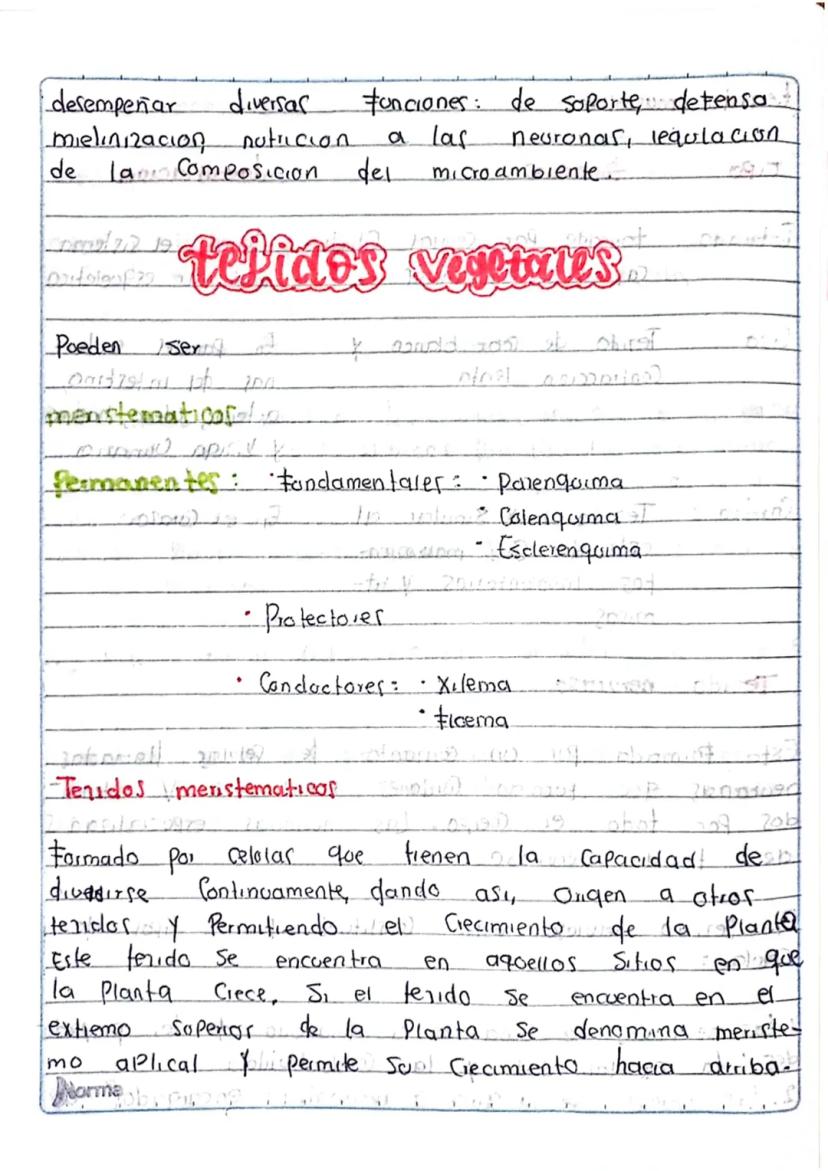 desempeñar diversas funciones: de soporte, defensa
mielinizacion, nutricion a las neuronas, regulacion
de la composicion del microambiente.
tejidos vegetales
Pueden ser
meristematicos
Permanentes: · fundamentales: · Parenquima
· Colenquima
- Esclerenquima
· Protectores
· Conductores: · Xilema
· floema
- Tejidos meristematicos
formado por celulas que tienen la capacidad de
dividirse continuamente, dando asi, origen a otros
tejidos y Permitiendo el crecimiento de la Planta
Este tejido se encuentra en aquellos sitios en que
la Planta crece, Si el tejido se encuentra en el
extremo superior de la Planta se denomina meriste-
mo aplical y permite su crecimiento hacia arriba.
Norma